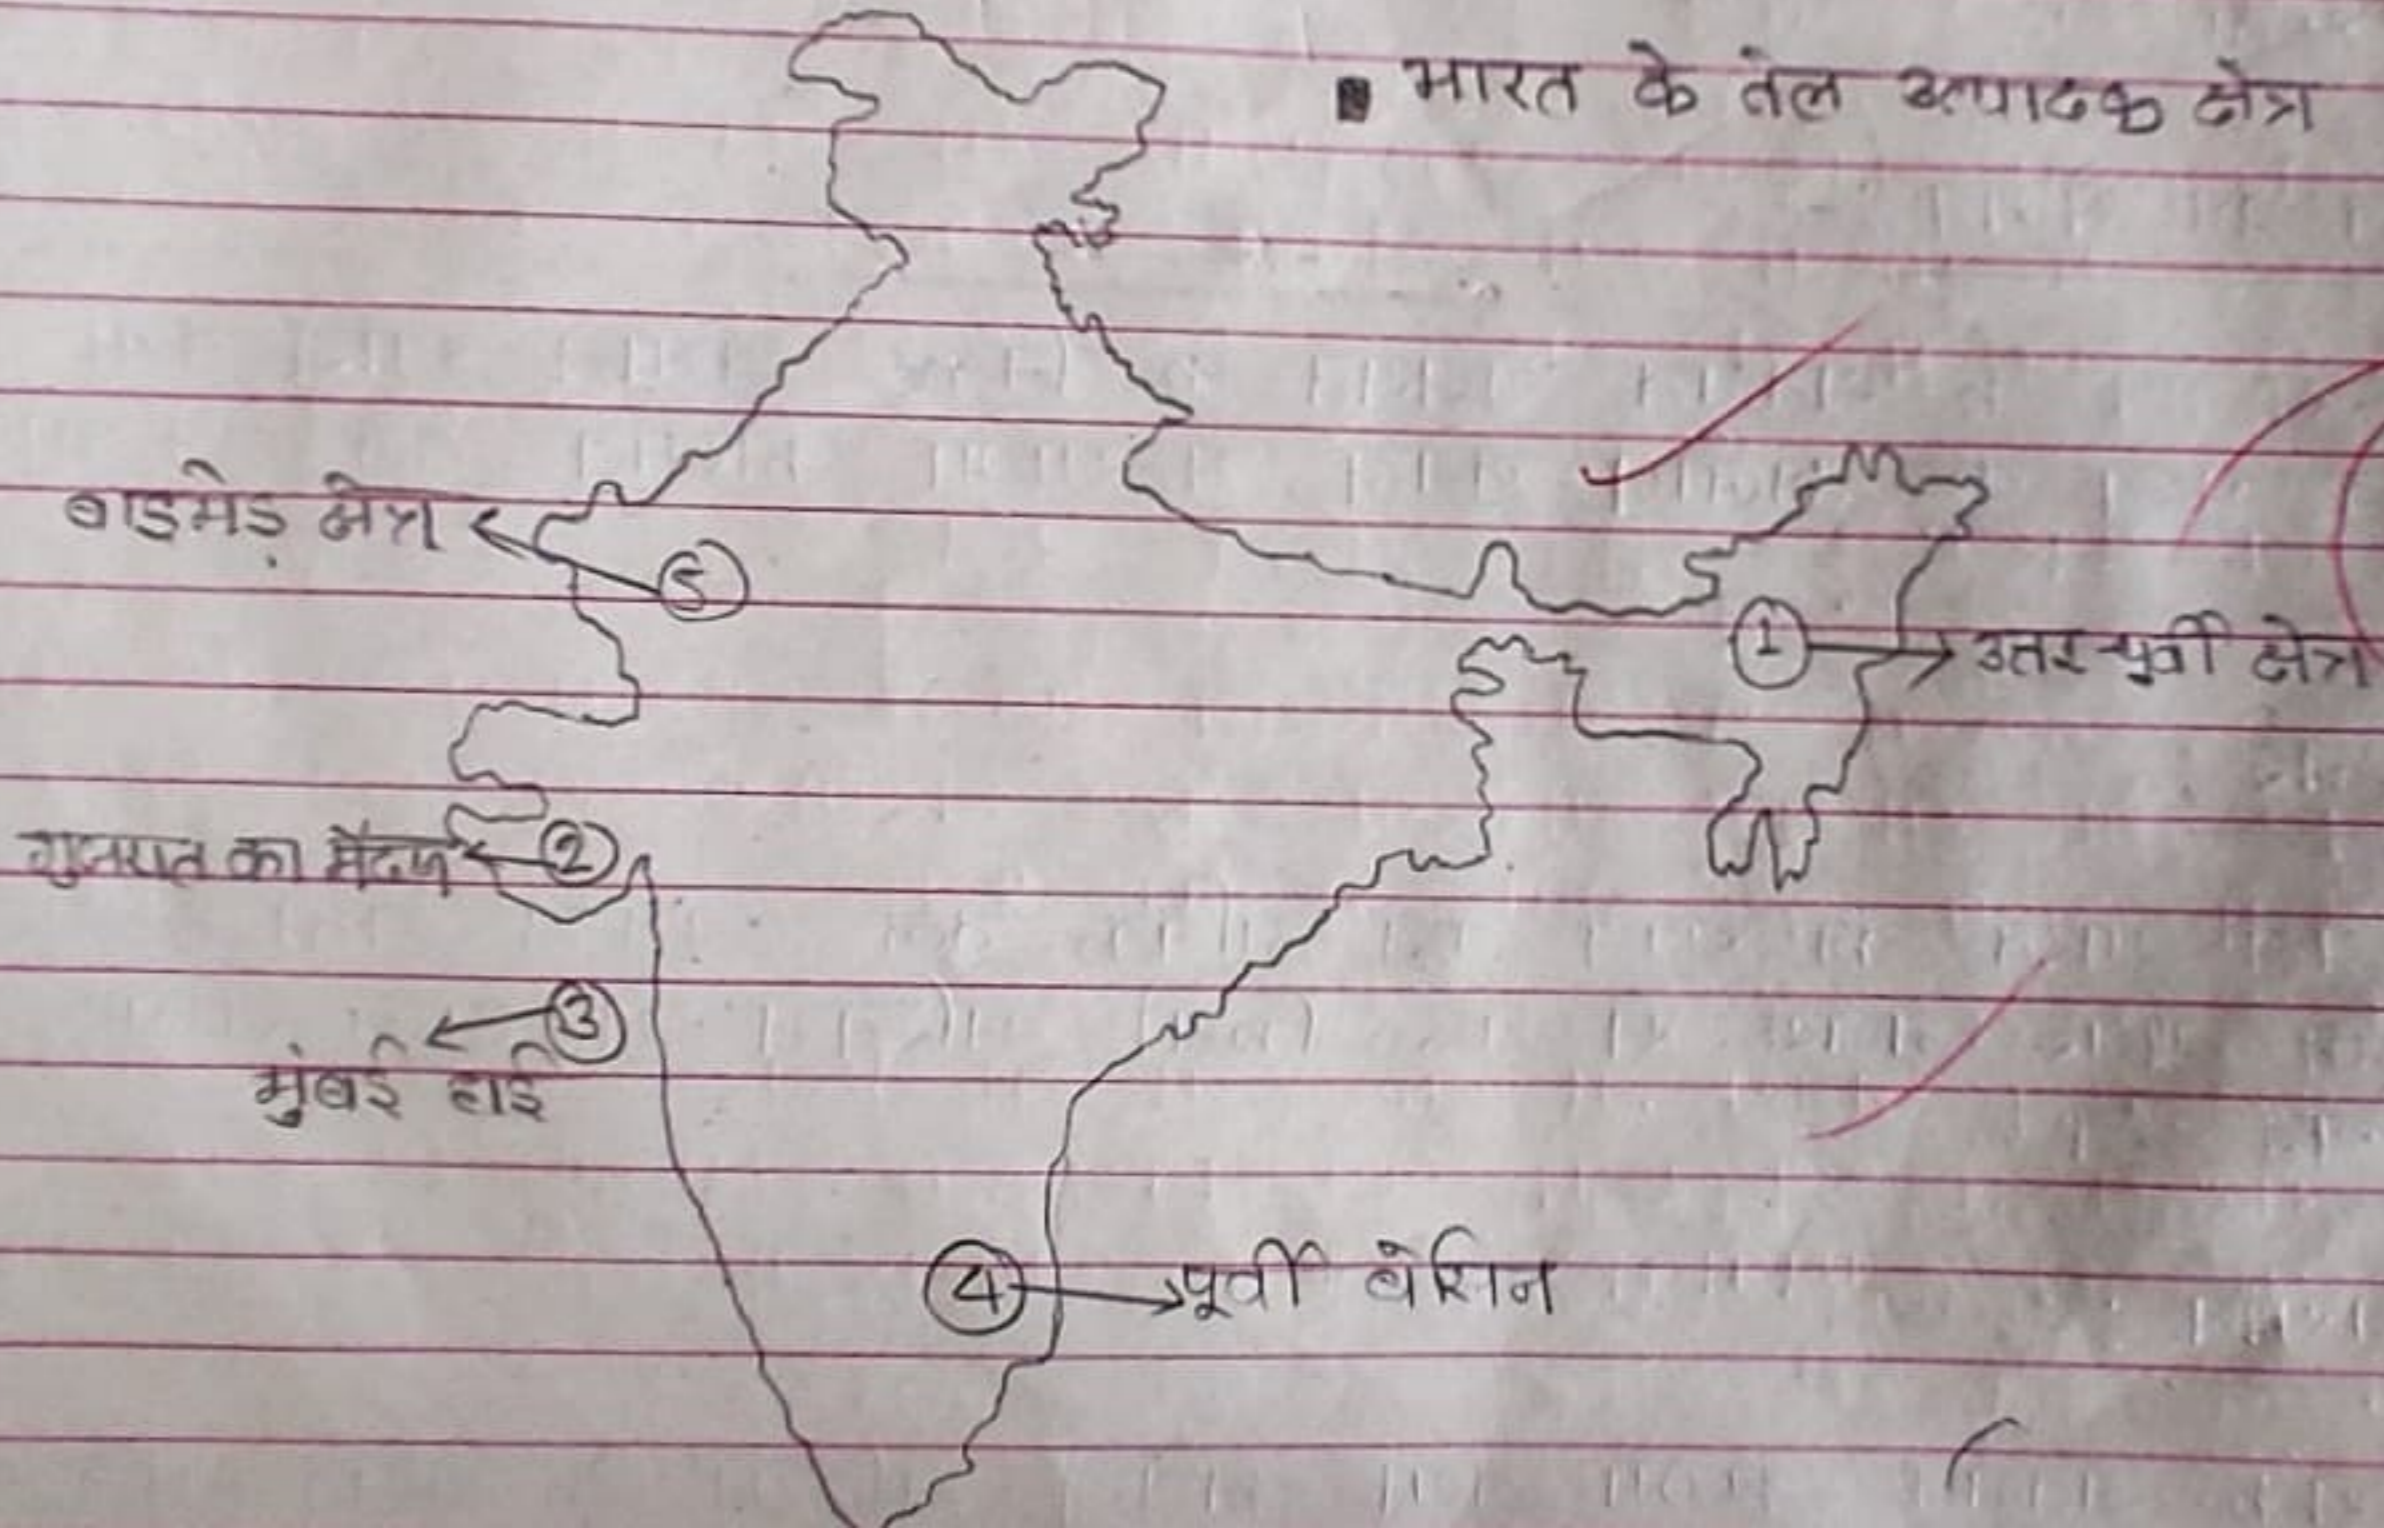 भारत के तेल उत्पादक क्षेत्र
बाड़मेड़ क्षेत्र
5
1
उतर-पूर्वी क्षेत्र
गुजरात का मैदान
2
3
मुंबई हाई
4
पूर्वी बेसिन